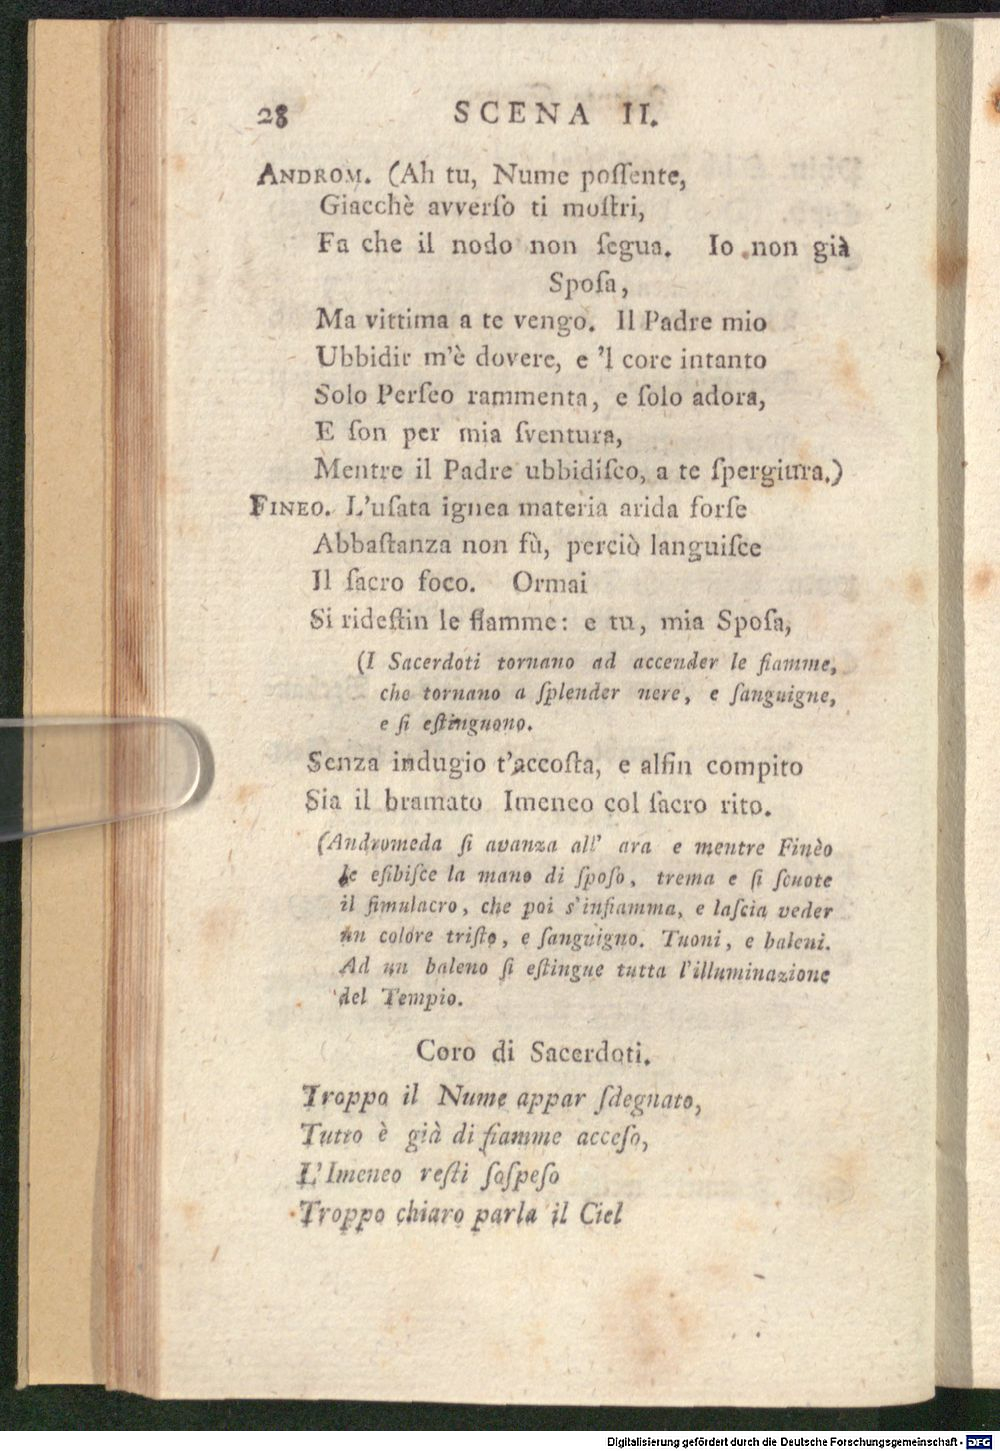 28 SCENA II.
ANDROM. (Ah tu, Nume poſſente,
Giacchè avverſo ti moſtri,
Fa che il nodo non ſegua. Io non già
Spoſa,
Ma vittima a te vengo. Il Padre mio
Ubbidir m'è dovere, e 'l core intanto
Solo Perſeo rammenta, e ſolo adora,
E ſon per mia ſventura,
Mentre il Padre ubbidiſco, a te ſpergiura.)
FINEO. L'uſata ignea materia arida forſe
Abbaſtanza non fù, perciò languiſce
Il ſacro foco. Ormai
Si rideſtin le fiamme: e tu, mia Spoſa,
(I Sacerdoti tornano ad accender le fiamme,
che tornano a ſplender nere, e ſanguigne,
e ſi eſtinguono.
Senza indugio t'accoſta, e alfin compito
Sia il bramato Imeneo col ſacro rito.
(Andromeda ſi avanza all' ara e mentre Finèo
le eſibiſce la mano di ſpoſo, trema e ſi ſcuote
il ſimulacro, che poi s'infiamma, e laſcia veder
un colore triſto, e ſanguigno. Tuoni, e baleni.
Ad un baleno ſi eſtingue tutta l'illuminazione
del Tempio.
Coro di Sacerdoti.
Troppo il Nume appar ſdegnato,
Tutto è già di fiamme acceſo,
L'Imeneo reſti ſoſpeſo
Troppo chiaro parla il Ciel
Digitalisierung gefördert durch die Deutsche Forschungsgemeinschaft - DFG